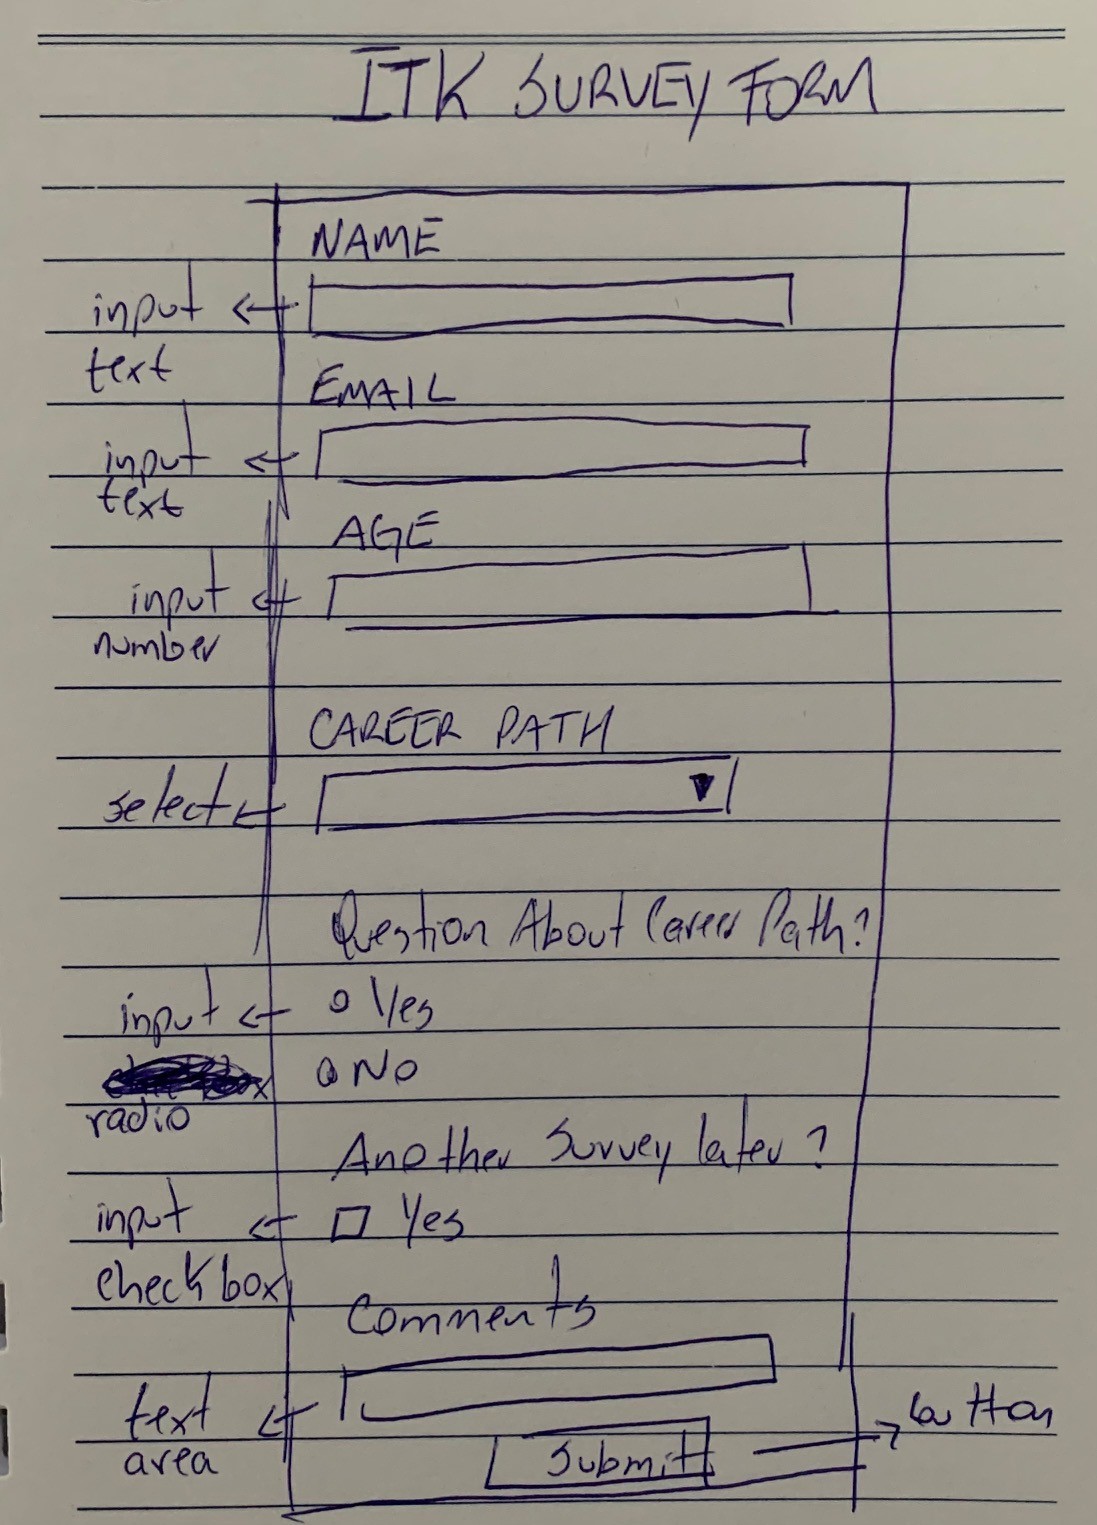 ITK SURVEY FORM
NAME
input
text
EMAIL
input
text
AGE
input
number
CAREER PATH
select
Question About Career Path?
input
Yes
No
radio
Another Survey later?
input
Yes
checkbox
Comments
text
area
button
Submit